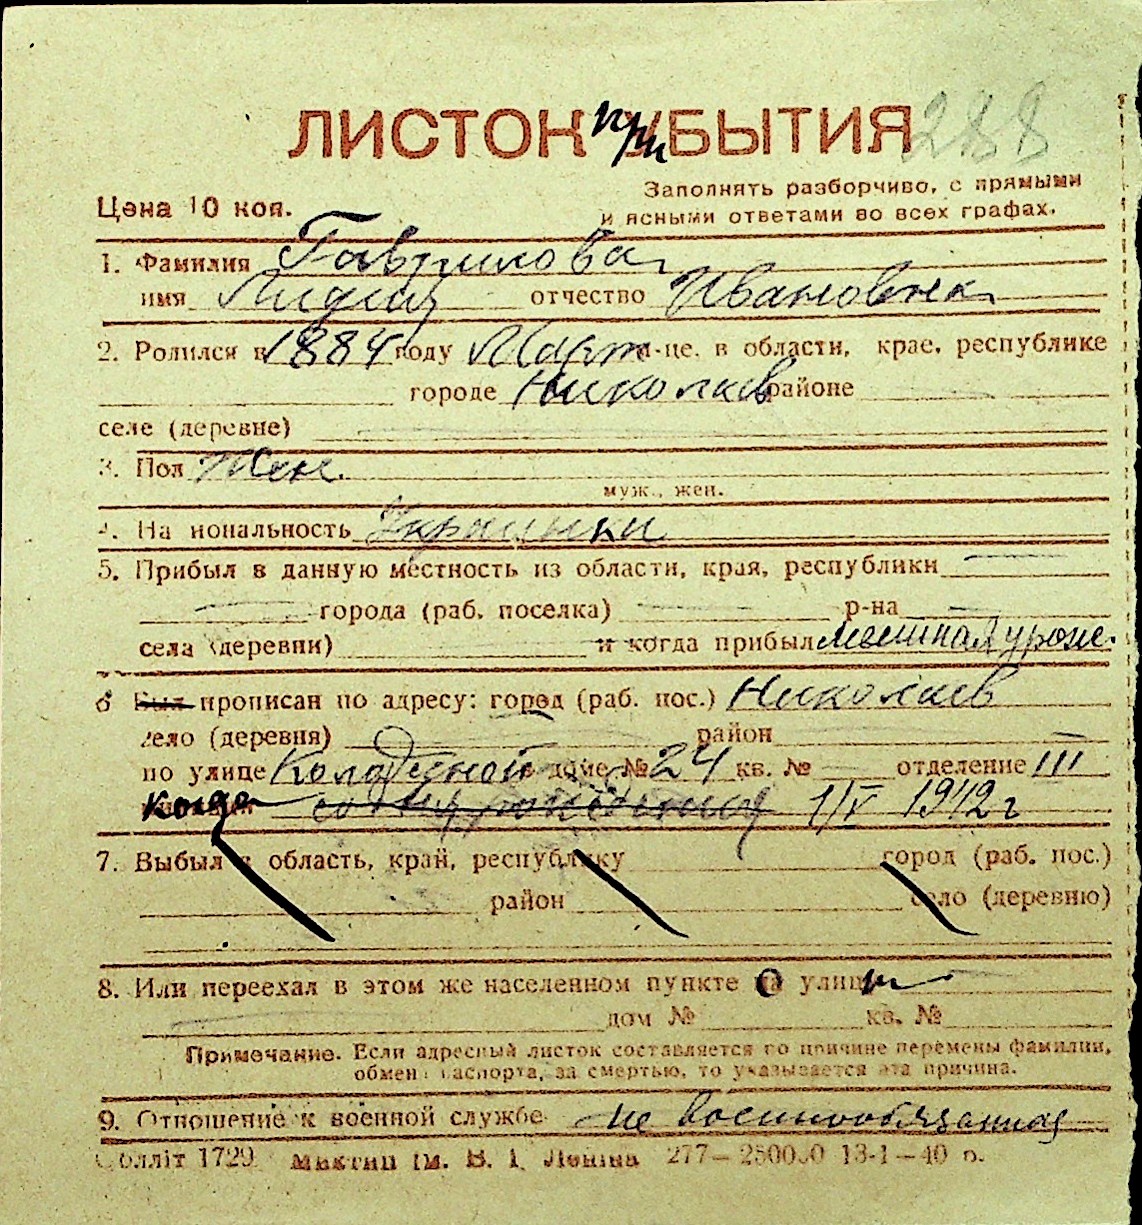 ЛИСТОК ПриБЫТИЯ 288
Заполнять разборчиво, с прямыми
Цена 10 коп. и ясными ответами во всех графах.
1. Фамилия Гаврилова
имя Лидия отчество Ивановна
2. Родился в 1884 году Март м-це, в области, крае, республике
городе Николаев районе
селе (деревне)
3. Пол Жен.
муж., жен.
4. Национальность Украинка
5. Прибыл в данную местность из области, края, республики
города (раб. поселка) р-на
села (деревни) и когда прибыл местная урож.
6 Был прописан по адресу: город (раб. пос.) Николаев
село (деревня) район
по улице Колодезной в доме № 24 кв. № отделение III
когда со дня рождения 1/V 1942 г
7. Выбыл в область, край, республику город (раб. пос.)
район село (деревню)
8. Или переехал в этом же населенном пункте с улицы
дом № кв. №
Примечание. Если адресный листок составляется по причине перемены фамилии,
обмена паспорта, за смертью, то указывается эта причина.
9. Отношение к военной службе не военнообязанная
Обллiт 1729 iм. В. I. Ленiна 277—250000 13-1—40 р.